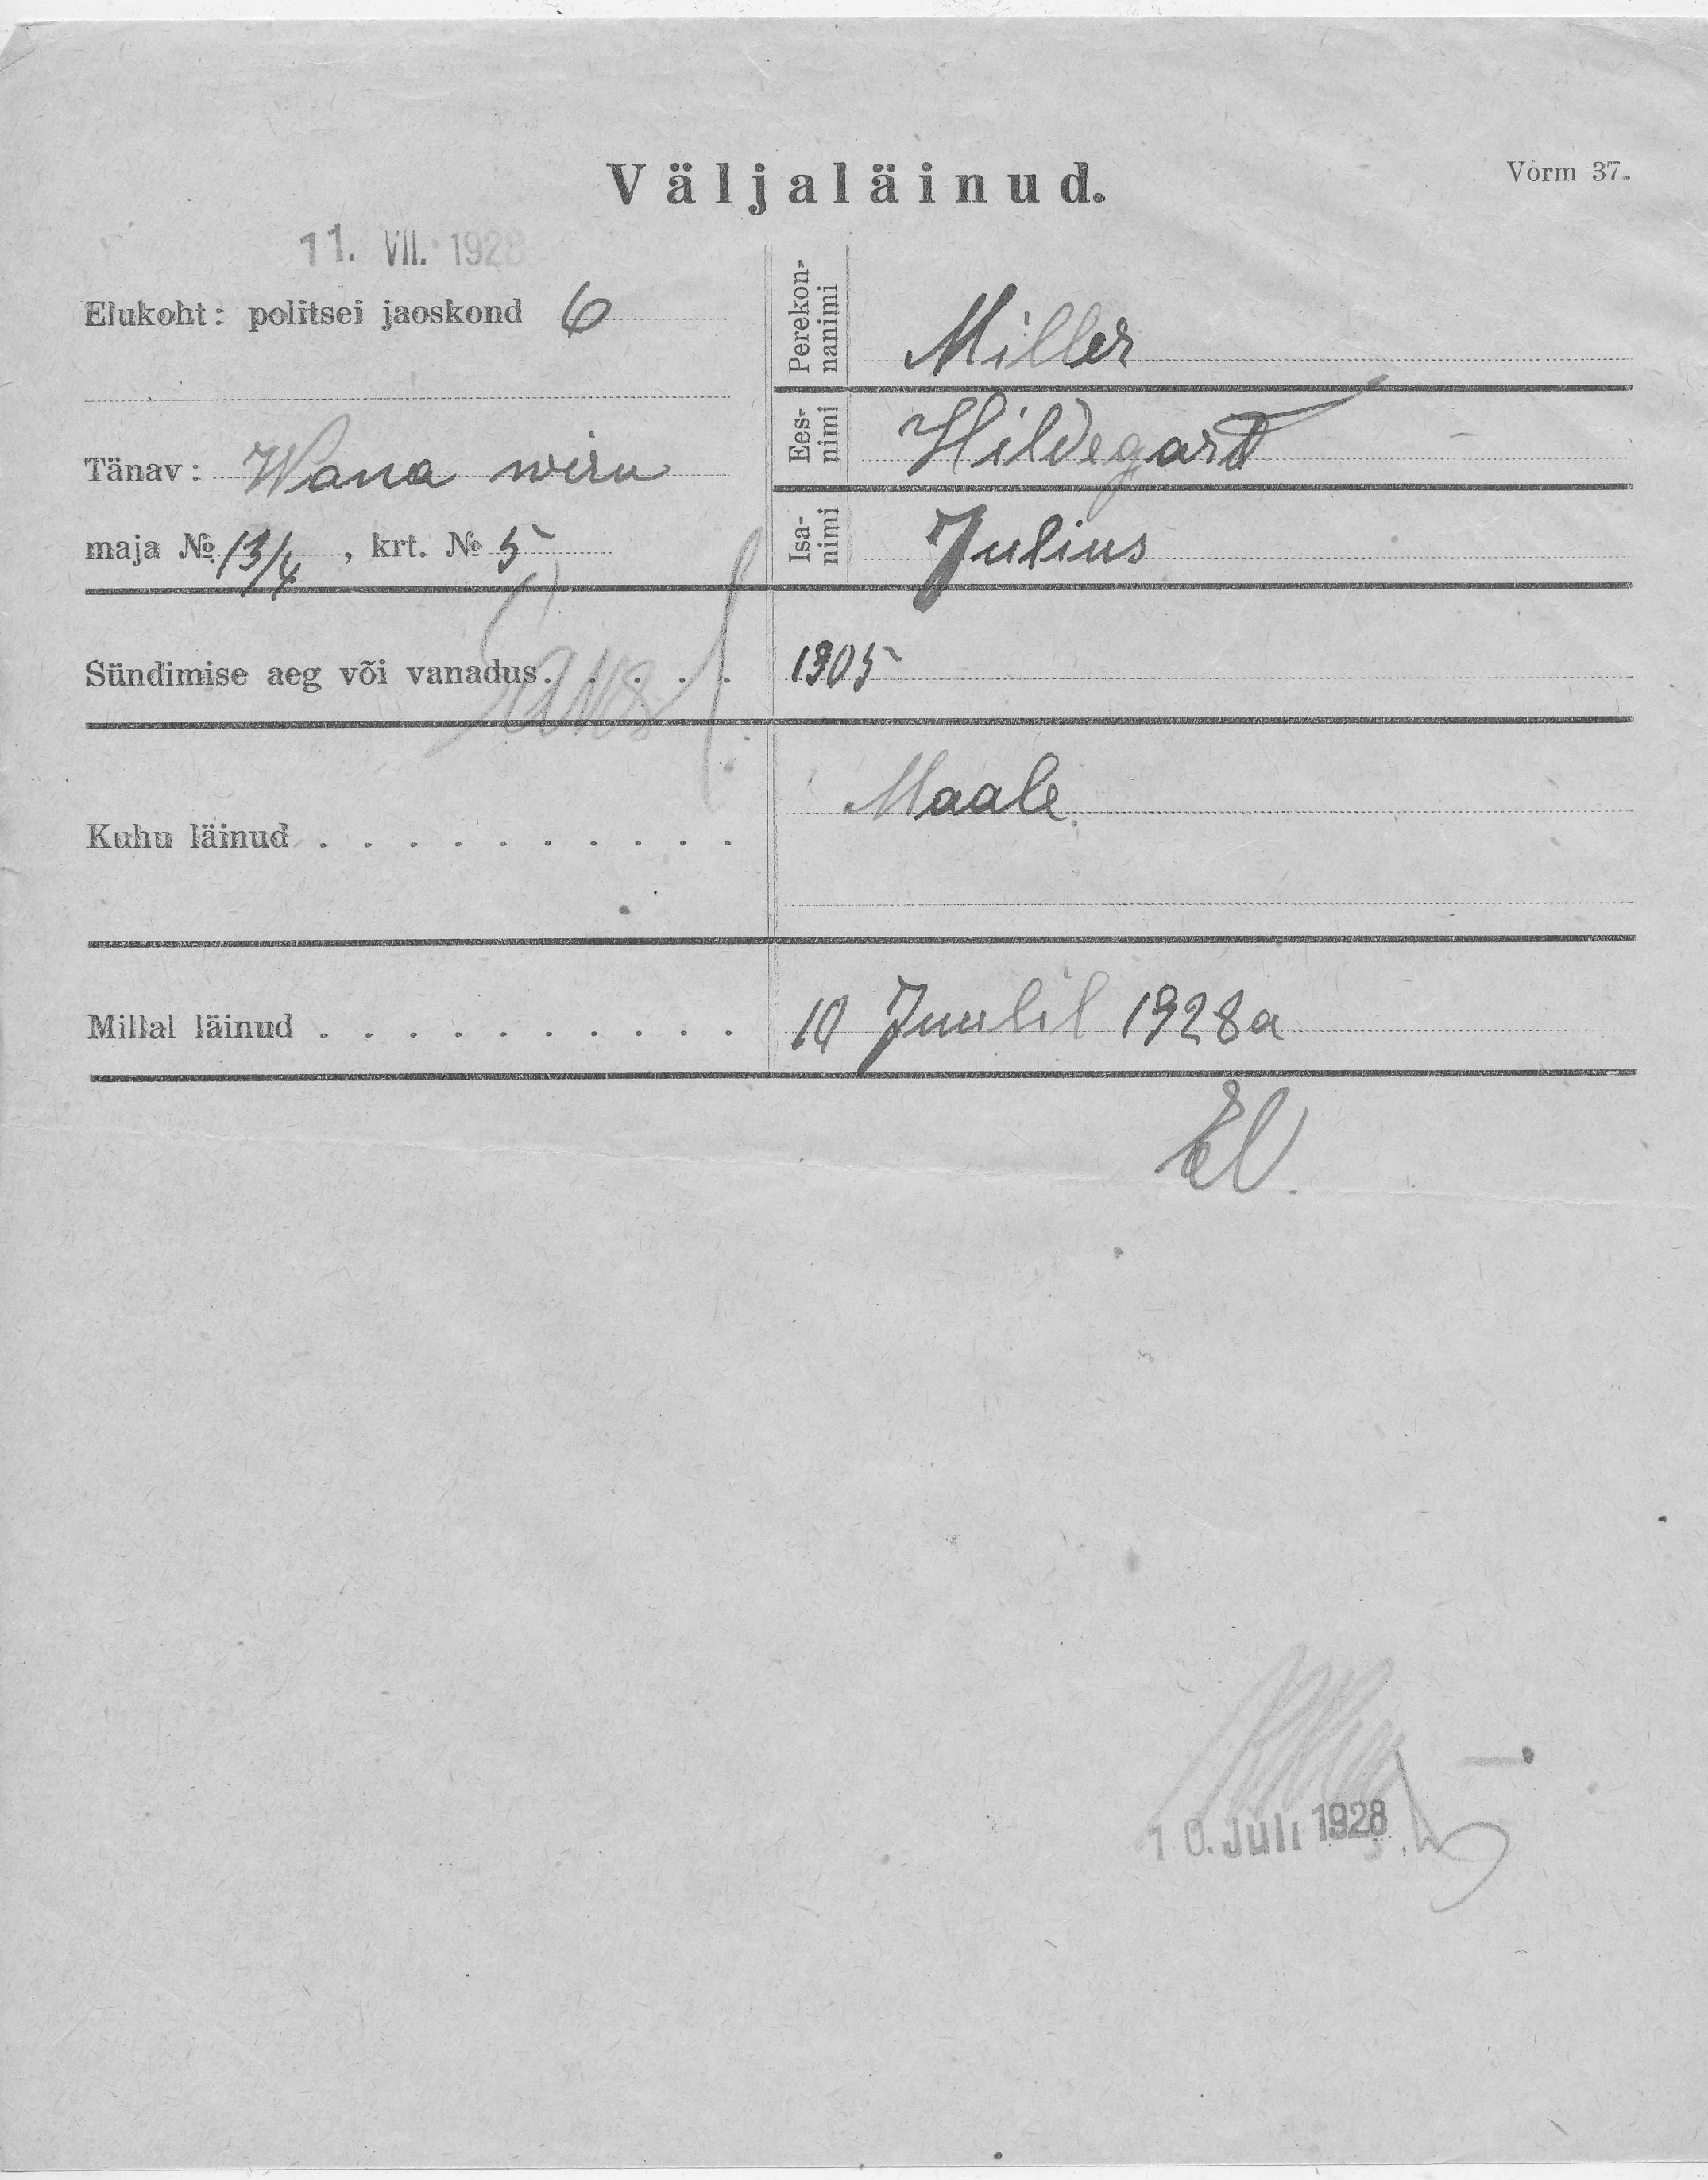 Väljaläinud.
Vorm 37.
11. VII. 1928
Elukoht: politsei jaoskond 6
Tänav: Wana wiru
maja № 13/4, krt. № 5
Perekon-
nanimi
Miller
Ees-
nimi
Hildegard
Isa-
nimi
Julius
Sündimise aeg või vanadus. . . . . 1905
Kuhu läinud . . . . . . . . . . Maale.
Millal läinud . . . . . . . . . . 10 Juulil 1928a
10. Juli 1928